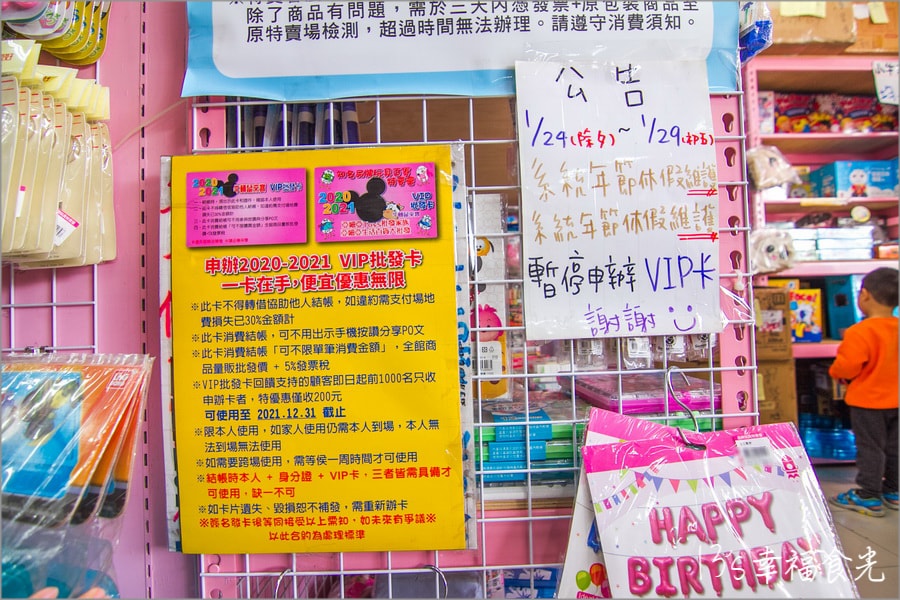 除了商品有問題，需於三天內憑發票+原包裝商品至
原特賣場檢測，超過時間無法辦理。請遵守消費須知。
公告
1/24(除夕)~1/29(初五)
系統年節休假維護
系統年節休假維護
暫停申辦VIP卡
謝謝
2020
2021
VIP批發卡
2020
2021
VIP
批發卡
申辦2020-2021 VIP批發卡
一卡在手，便宜優惠無限
※此卡不得轉借協助他人結帳，如違約需支付場地
費損失已30%金額計
※此卡消費結帳，可不用出示手機按讚分享PO文
※此卡消費結帳「可不限單筆消費金額」，全館商
品量販批發價 + 5%發票稅
※VIP批發卡回饋支持的顧客即日起前1000名只收
申辦卡者，特優惠僅收200元
可使用至 2021.12.31 截止
※限本人使用，如家人使用仍需本人到場，本人無
法到場無法使用
※如需要跨場使用，需等侯一周時間才可使用
※結帳時本人 + 身分證 + VIP卡，三者皆需具備才
可使用，缺一不可
※如卡片遺失、毀損恕不補發，需重新辦卡
※簽名發卡後等同接受以上需知，如未來有爭議※
以此告約為處理標準
HAPPY
BIRTHDAY
J's幸福食光